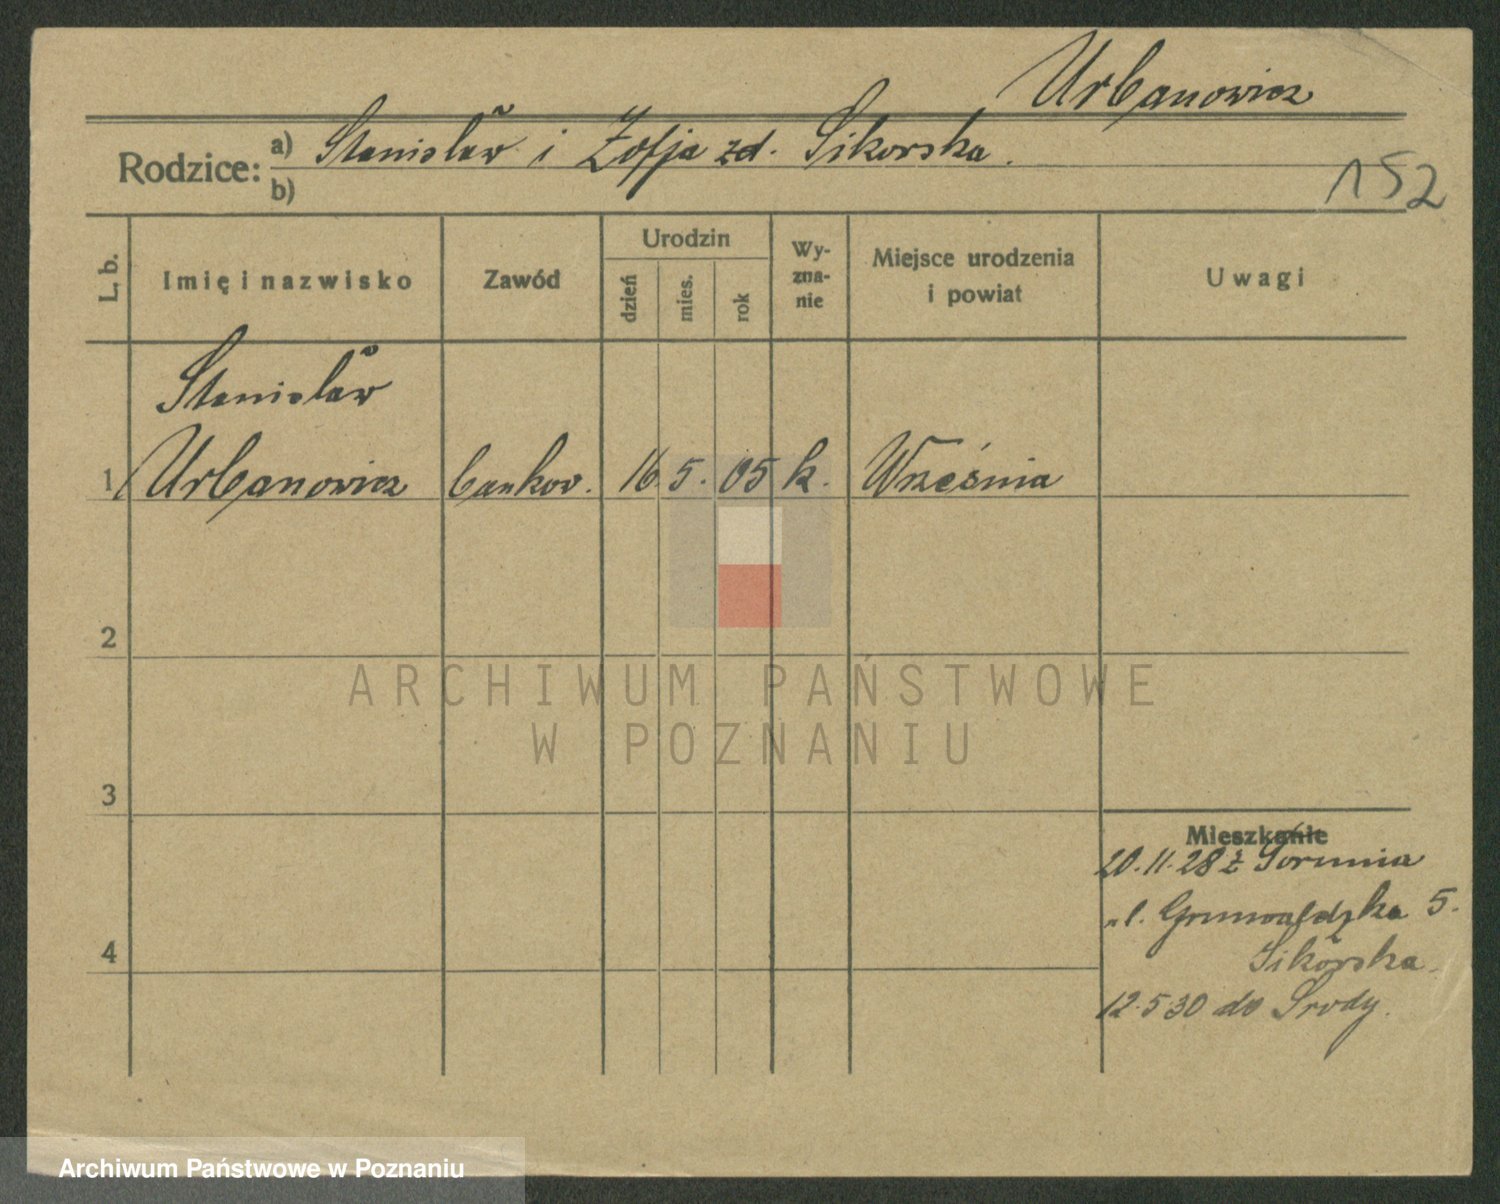 Urbanowicz
Rodzice: a) Stanisław i Zofja zd. Sikorska.
b)
152
L. b.
Imię i nazwisko
Zawód
Urodzin
dzień
mies.
rok
Wy-
zna-
nie
Miejsce urodzenia
i powiat
Uwagi
Stanisław
1 Urbanowicz bankow. 16 5. 05 k. Września
2
3
4
Mieszkanie
20.11.28 z Torunia
ul. Grunwaldzka 5.
Sikorska.
12.5 30 do Środy.
ARCHIWUM PAŃSTWOWE
W POZNANIU
Archiwum Państwowe w Poznaniu